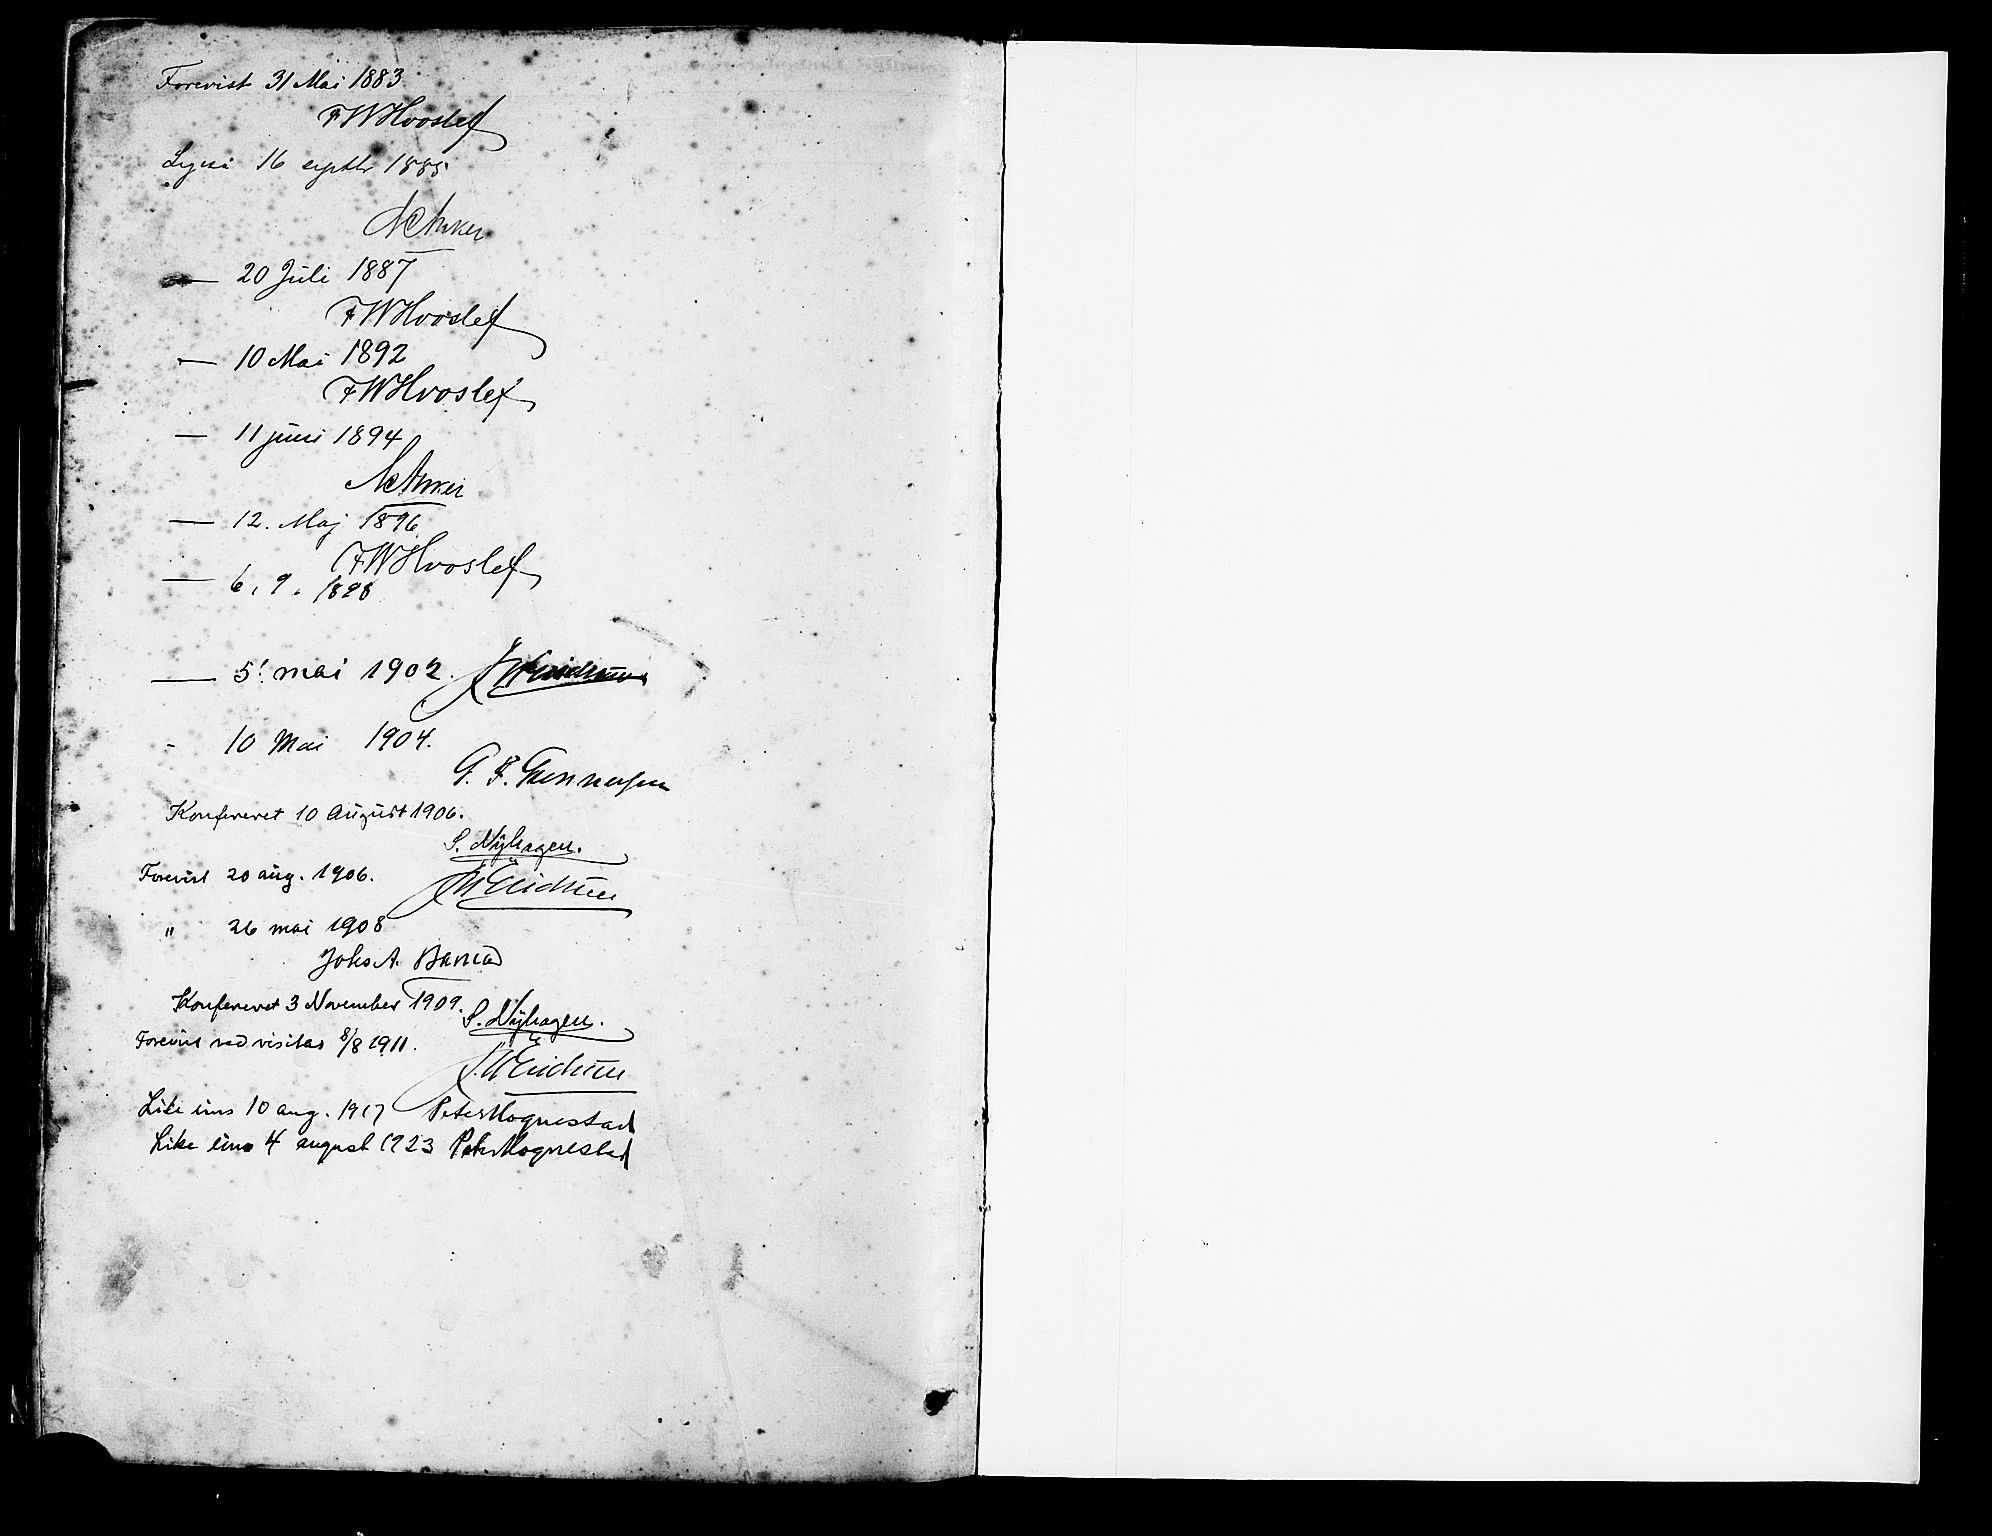 Forevist 31 Mai 1883
FWHvoslef
16 septbr 1885
NCAnker
— 20 Juli 1887
FWHvoslef
— 10 Mai 1892
FWHvoslef
— 11 juni 1894
NCAnker
— 12. Maj 1896
FWHvoslef
— 6. 9. 1898
— 5! mai 1902.
- 10 Mai 1904.
G. F. Gunnersen
Konfereret 10 August 1906.
S. Nÿhagen.
Forevist 20 aug. 1906.
" 26 mai 1908
Johs A.
Konfereret 3 November 1909.
S. Nÿhagen.
Forevist ved visitas 8/8 1911.
Like ens 10 aug. 1917 Peter Hognestad
Like ens 4 august 1923 Peter Hognestad